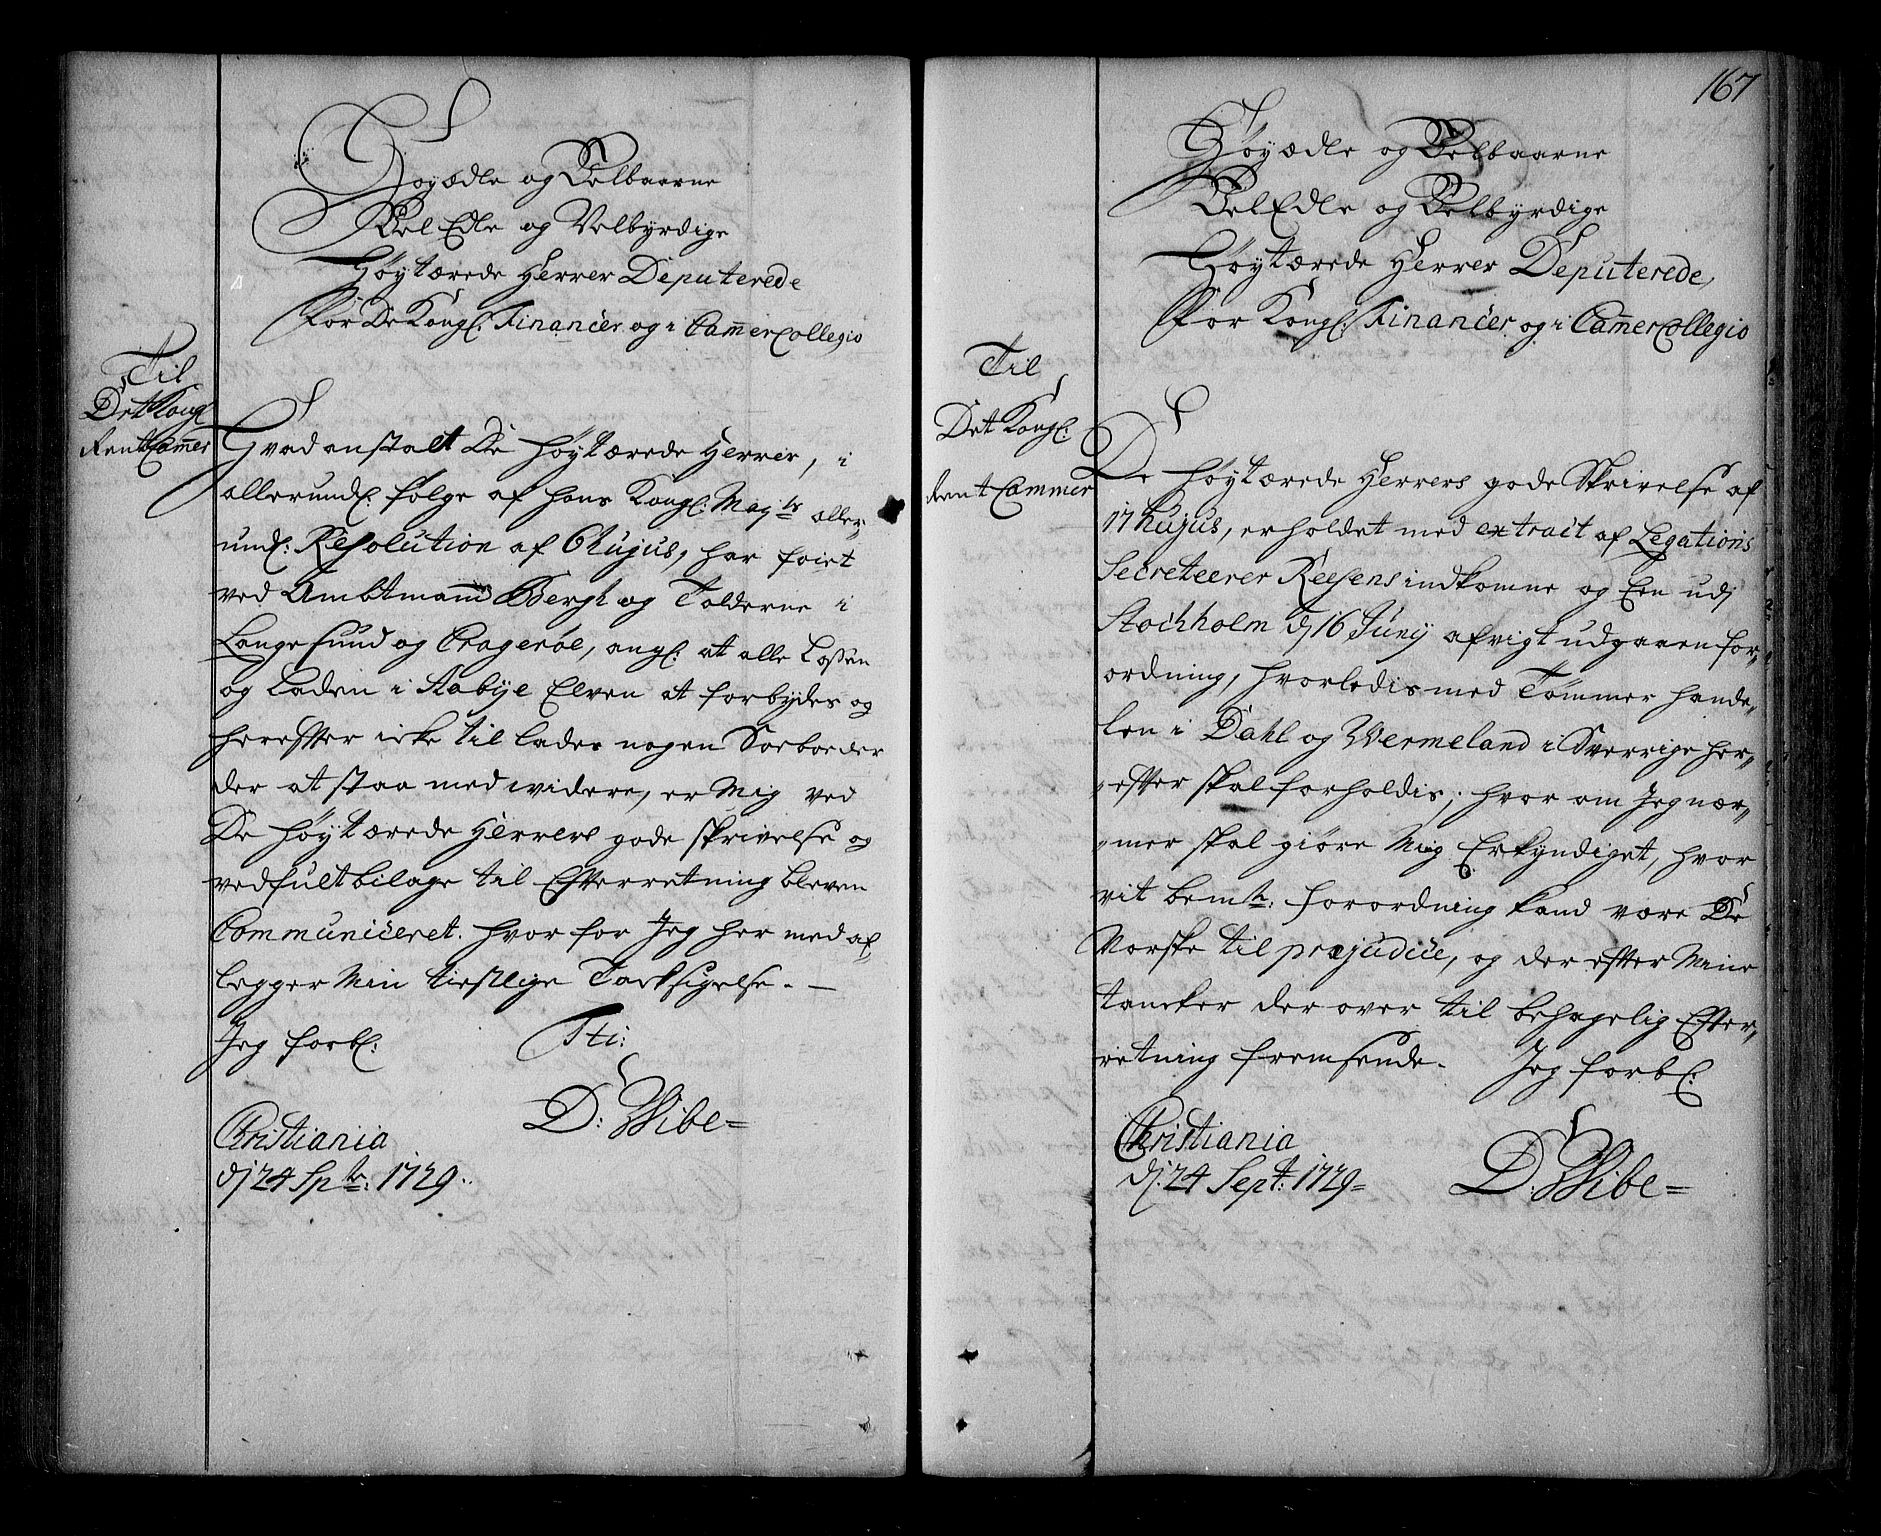 Høyædle og Velbaarne
Vel Edle og Velbyrdige
Høytærede Herrer Deputerede
for De Kongl: Financer og i Cam̅erCollegio
Til
Det Kongl
RentCam̅er
Hvad anstalt De Høytærede Herrer, i
allerundl: følge af hans Kongl: Mayts aller„
undl: Resolution af 6 Hujus, har føiet
ved Ambtmand Bergh og Tolderne i
Langesund og Cragerøe, angl: at alle Lossen
og Laden i Aabye Elven at forbydes og
herefter icke tillades nogen Soeboeder
der at staa med widere, er Mig ved
De Høytærede Herrers gode skrivelse og
vedfult bilage til Efterretning bleven
Communiceret. hvor for Jeg her med af„
legger Min tienstlige Tacksigelse. —
Jeg forbl: Tti:
D: Wibe=
Christiania
dj 24 Sptr: 1729.
167
Høyædle og Velbaarne
VelEdle og Velbyrdige
Høytærede Herrer Deputerede,
for Kongl: Financer og i CammerCollegio
Til
Det Kongl:
Rent Cammer
De Høytærede Herrers gode Skrivelse af
17 hujus, erholdet med extract af Legations
Secreteerer Reesens indkomne og Een udj
Stockholm dj 16 Junij afvigt udgaaen for„
ordning, hvorledis med Tømmer hande„
len i Dahl og Wermeland i Sverrige her„
„efter skal forholdis; hvor om Jeg nær„
„mer skal giøre Mig Erkyndiget, hvor
vit bemte: forordning kand være De
Norske til præjudice, og der efter Mine
tancker der over til behagelig Efter„
retning fremsende. Jeg forbl:
Christiania
dj: 24 Sept: 1729=
D: Wibe=